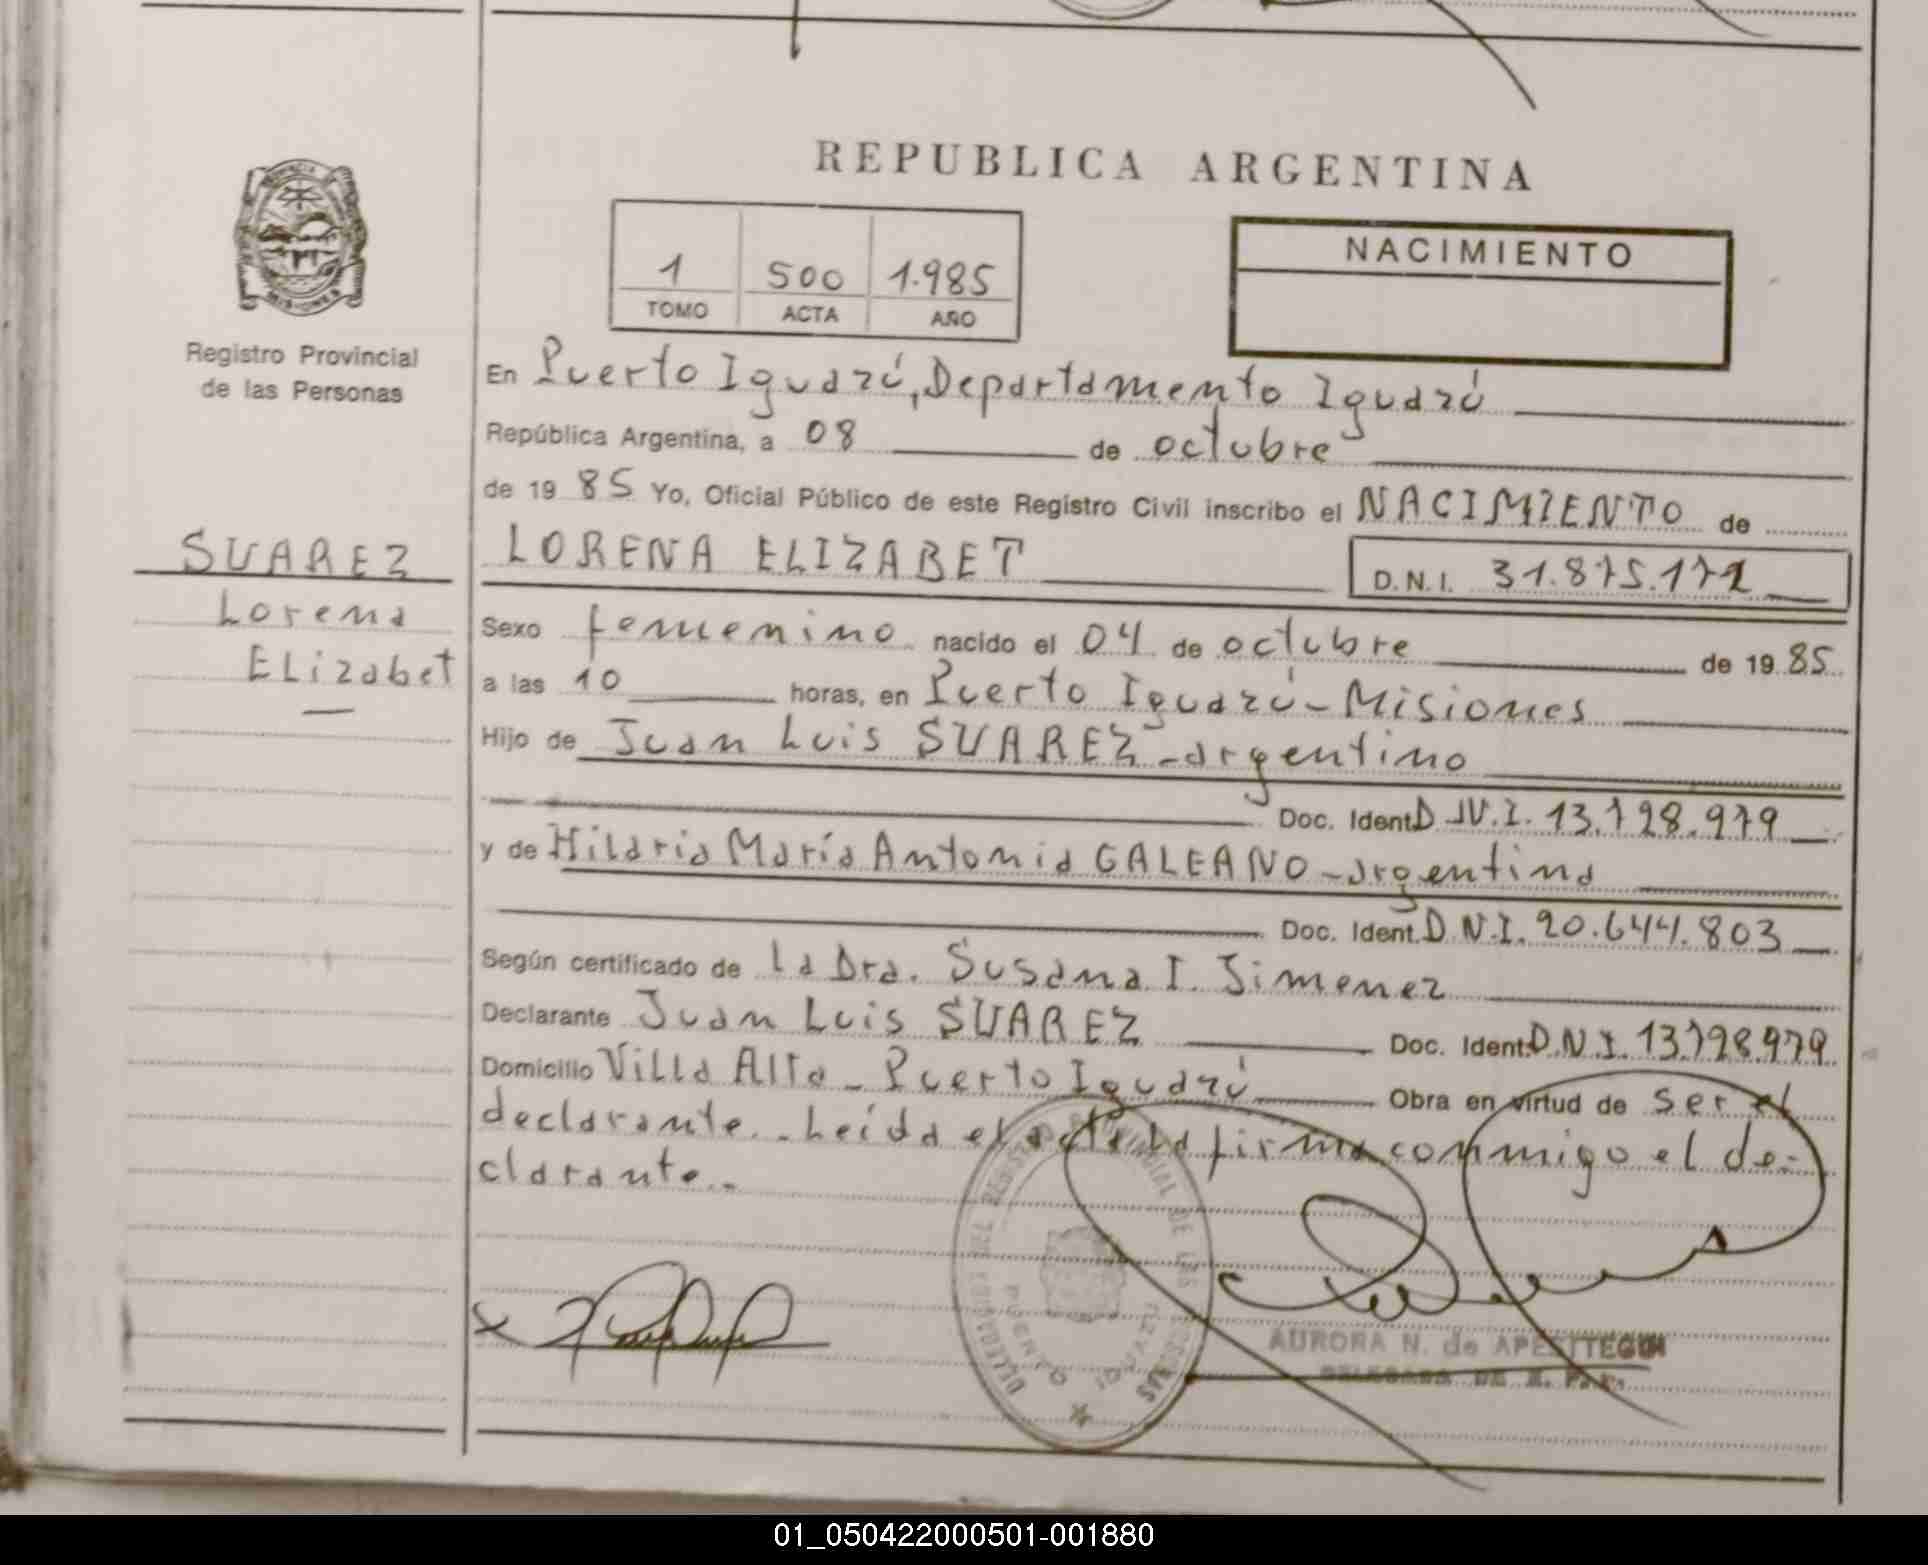 REPUBLICA ARGENTINA
1 500 1.985
TOMO ACTA AÑO
NACIMIENTO
Registro Provincial
de las Personas
SUAREZ
Lorena
Elizabet
En Puerto Iguazú, Departamento Iguazú
República Argentina, a 08 de octubre
de 1985 Yo, Oficial Público de este Registro Civil inscribo el NACIMIENTO de
LORENA ELIZABET D.N.I. 31.875.172
Sexo femenino nacido el 04 de octubre de 1985
a las 10 horas, en Puerto Iguazú - Misiones
Hijo de Juan Luis SUAREZ - argentino
Doc. Ident. D.N.I. 13.798.979
y de Hilaria María Antonia GALEANO - argentina
Doc. Ident. D.N.I. 20.644.803
Según certificado de la Dra. Susana I. Jimenez
Declarante Juan Luis SUAREZ Doc. Ident. D.N.I. 13.798.979
Domicilio Villa Alta - Puerto Iguazú Obra en virtud de ser el
declarante.- Leída el acta la firma conmigo el de-
clarante.-
DELEGACION DEL REGISTRO PROVINCIAL DE LAS PERSONAS
PUERTO IGUAZU
AURORA N. de
DELEGADA DE R. P. P.
01_050422000501-001880